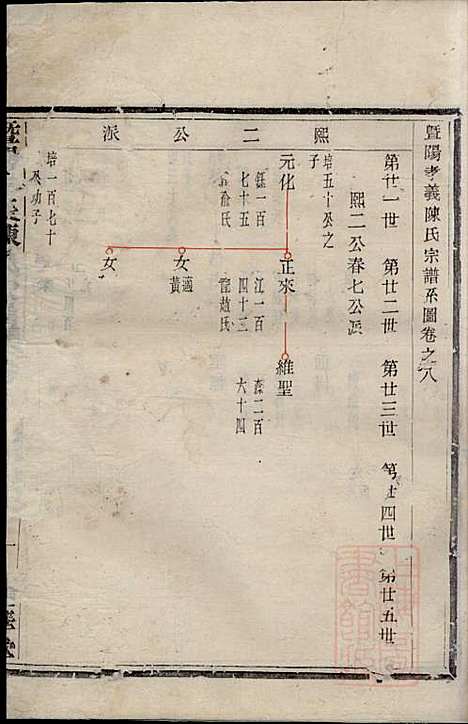 暨陽孝義陳氏宗譜系圖卷之八
第廿一世 第廿二世 第廿三世 第廿四世 第廿五世
熙二公春七公派
熙二公派
培五十公之
子
元化
鈺一百
七十五
俞氏
正來
江一百
四十三
趙氏
維聖
森二百
六十四
女
適
黃
女
培一百七十
公幼子